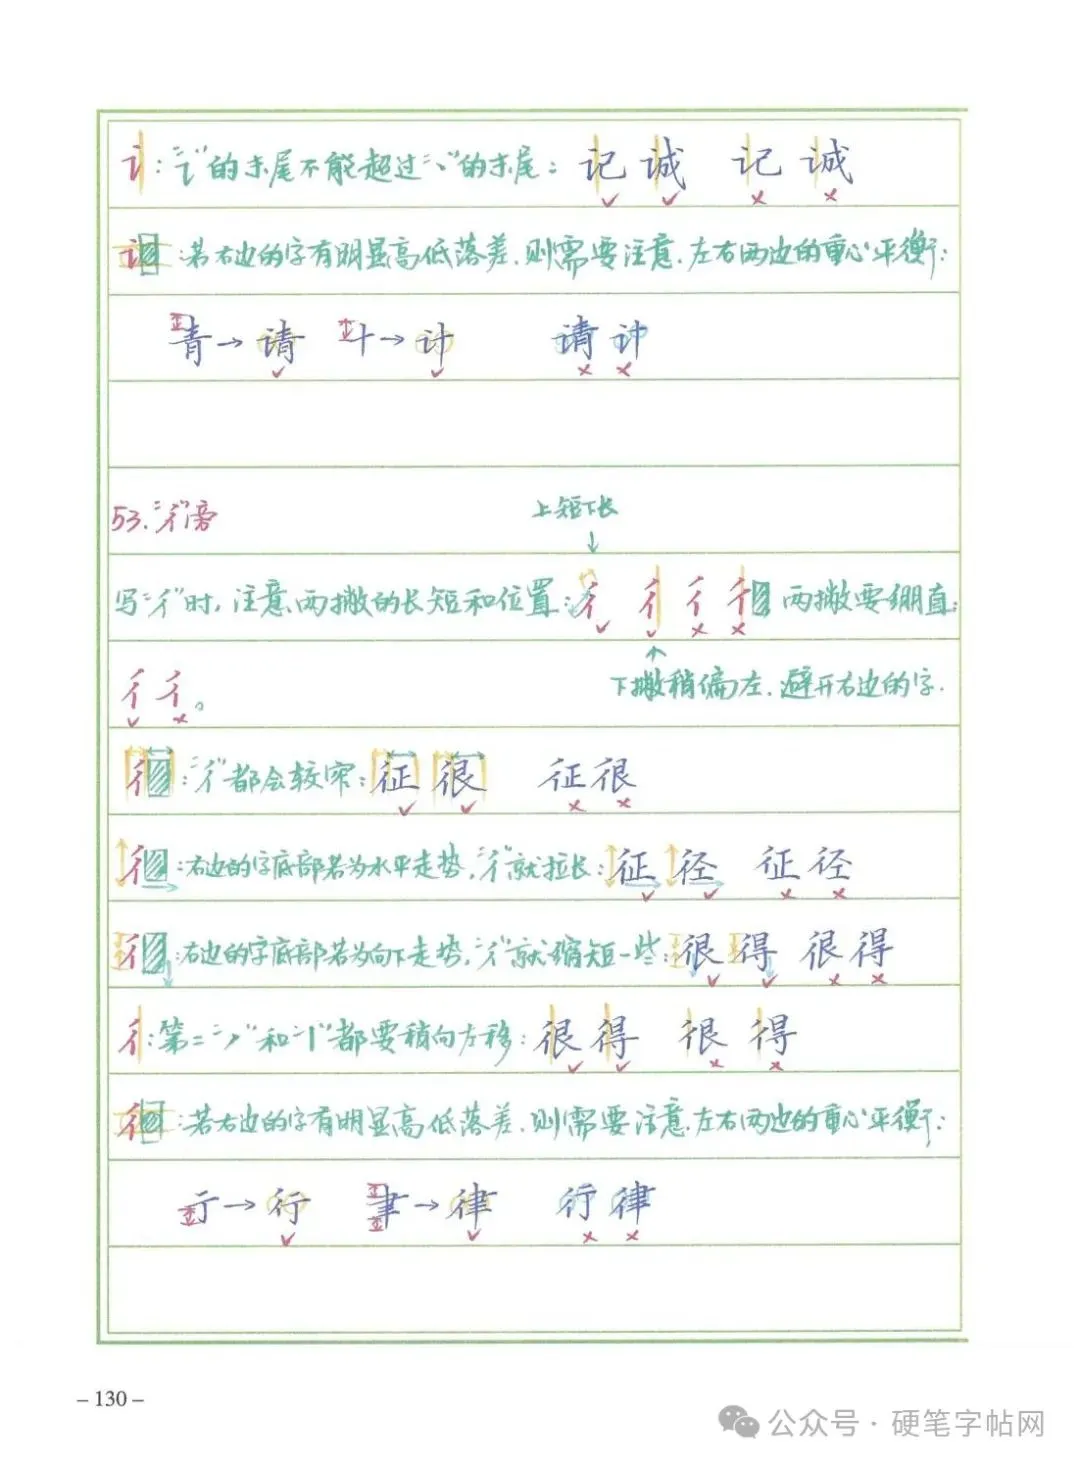 讠:"讠"的末尾不能超过"丶"的末尾: 记 诚 记 诚
训:若右边的字有明显高低落差,则需要注意,左右两边的重心平衡:
青→请 十→计 请 计
53."彳"旁
上短下长
写"彳"时,注意两撇的长短和位置:彳 彳 彳 彳 两撇要绷直:
彳 彳。
下撇稍偏左,避开右边的字.
彳:"彳"都会较窄:征 很 征 很
彳:右边的字底部若为水平走势,"彳"就拉长:征 径 征 径
彳:右边的字底部若为向下走势,"彳"就缩短一些:很 得 很 得
彳:第二"丿"和"丨"都要稍向左移:很 得 很 得
彳:若右边的字有明显高低落差,则需要注意,左右两边的重心平衡:
亍→行 聿→律 行 律
– 130 –
公众号·硬笔字帖网